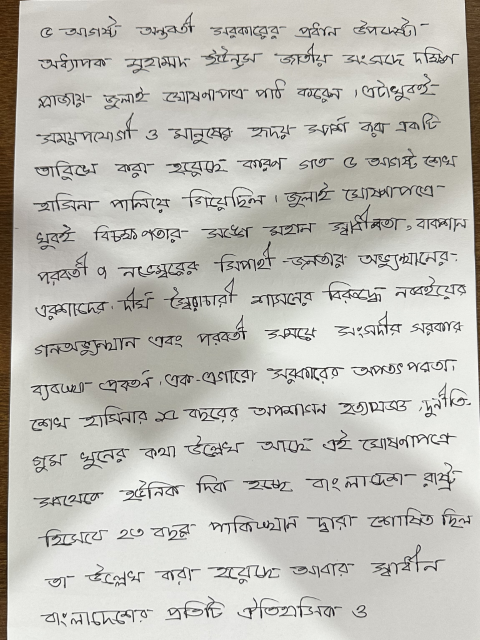 ৫ আগস্ট অন্তবর্তী সরকারের প্রধান উপদেষ্টা-
অধ্যাপক মুহাম্মদ ইউনুস জাতীয় সংসদে দক্ষিণ
প্লাজায় জুলাই ঘোষণাপত্র পাঠ করেন। এটা খুবই-
সময়পযোগী ও মানুষের হৃদয় স্পর্শ করা একটি
তারিখে করা হয়েছে কারণ গত ৫ আগস্ট শেখ
হাসিনা পালিয়ে গিয়েছিল। জুলাই ঘোষণাপত্রে-
খুবই বিচক্ষণতার সঙ্গে মহান স্বাধীনতা, বাকশাল
পরবর্তী ৭ নভেম্বরের সিপাহী জনতার অভ্যুত্থানের,
এরশাদের দীর্ঘ স্বৈরাচারী শাসনের বিরুদ্ধে নব্বইয়ের
গনঅভ্যুত্থান এবং পরবর্তী সময়ে সংসদীয় সরকার
ব্যবস্থা প্রবর্তন, এক-এগারো সরকারের অপতৎপরতা,
শেখ হাসিনার বছরের অপশাসন হত্যাযজ্ঞ, দুর্নীতি-
গুম খুনের কথা উল্লেখ আছে এই ঘোষণাপত্রে
সবথেকে ইউনিক দিক হচ্ছে বাংলাদেশ রাষ্ট্র
হিসেবে ২৩ বছর পাকিস্থান দ্বারা শোষিত ছিল
তা উল্লেখ করা হয়েছে আবার স্বাধীন
বাংলাদেশের প্রতিটি ঐতিহাসিক ও